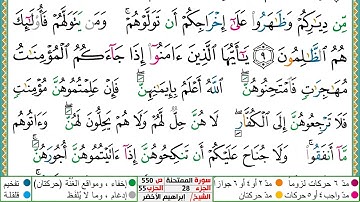 مِّن دِيَـٰرِكُمْ وَظَـٰهَرُوا۟ عَلَىٰٓ إِخْرَاجِكُمْ أَن تَوَلَّوْهُمْ ۚ وَمَن يَتَوَلَّهُمْ فَأُو۟لَـٰٓئِكَ
هُمُ ٱلظَّـٰلِمُونَ ٩ يَـٰٓأَيُّهَا ٱلَّذِينَ ءَامَنُوٓا۟ إِذَا جَآءَكُمُ ٱلْمُؤْمِنَـٰتُ
مُهَـٰجِرَٰتٍ فَٱمْتَحِنُوهُنَّ ۖ ٱللَّهُ أَعْلَمُ بِإِيمَـٰنِهِنَّ ۖ فَإِنْ عَلِمْتُمُوهُنَّ مُؤْمِنَـٰتٍ
فَلَا تَرْجِعُوهُنَّ إِلَى ٱلْكُفَّارِ ۖ لَا هُنَّ حِلٌّ لَّهُمْ وَلَا هُمْ يَحِلُّونَ لَهُنَّ ۖ وَءَاتُوهُم
مَّآ أَنفَقُوا۟ ۚ وَلَا جُنَاحَ عَلَيْكُمْ أَن تَنكِحُوهُنَّ إِذَآ ءَاتَيْتُمُوهُنَّ أُجُورَهُنَّ ۚ
مدّ ٦ حركات لزوماً مدّ ٢ أو ٤ أو ٦ جوازاً سورة الممتحنة ص 550 إخفاء، ومواقع الغنّة (حركتان) تفخيم
مدّ واجب ٤ أو ٥ حركات مدّ حركتان الجزء 28 الحزب 55 إدغام، وما لا يُلفَظ قلقلة
الشيخ/ إبراهيم الأخضر